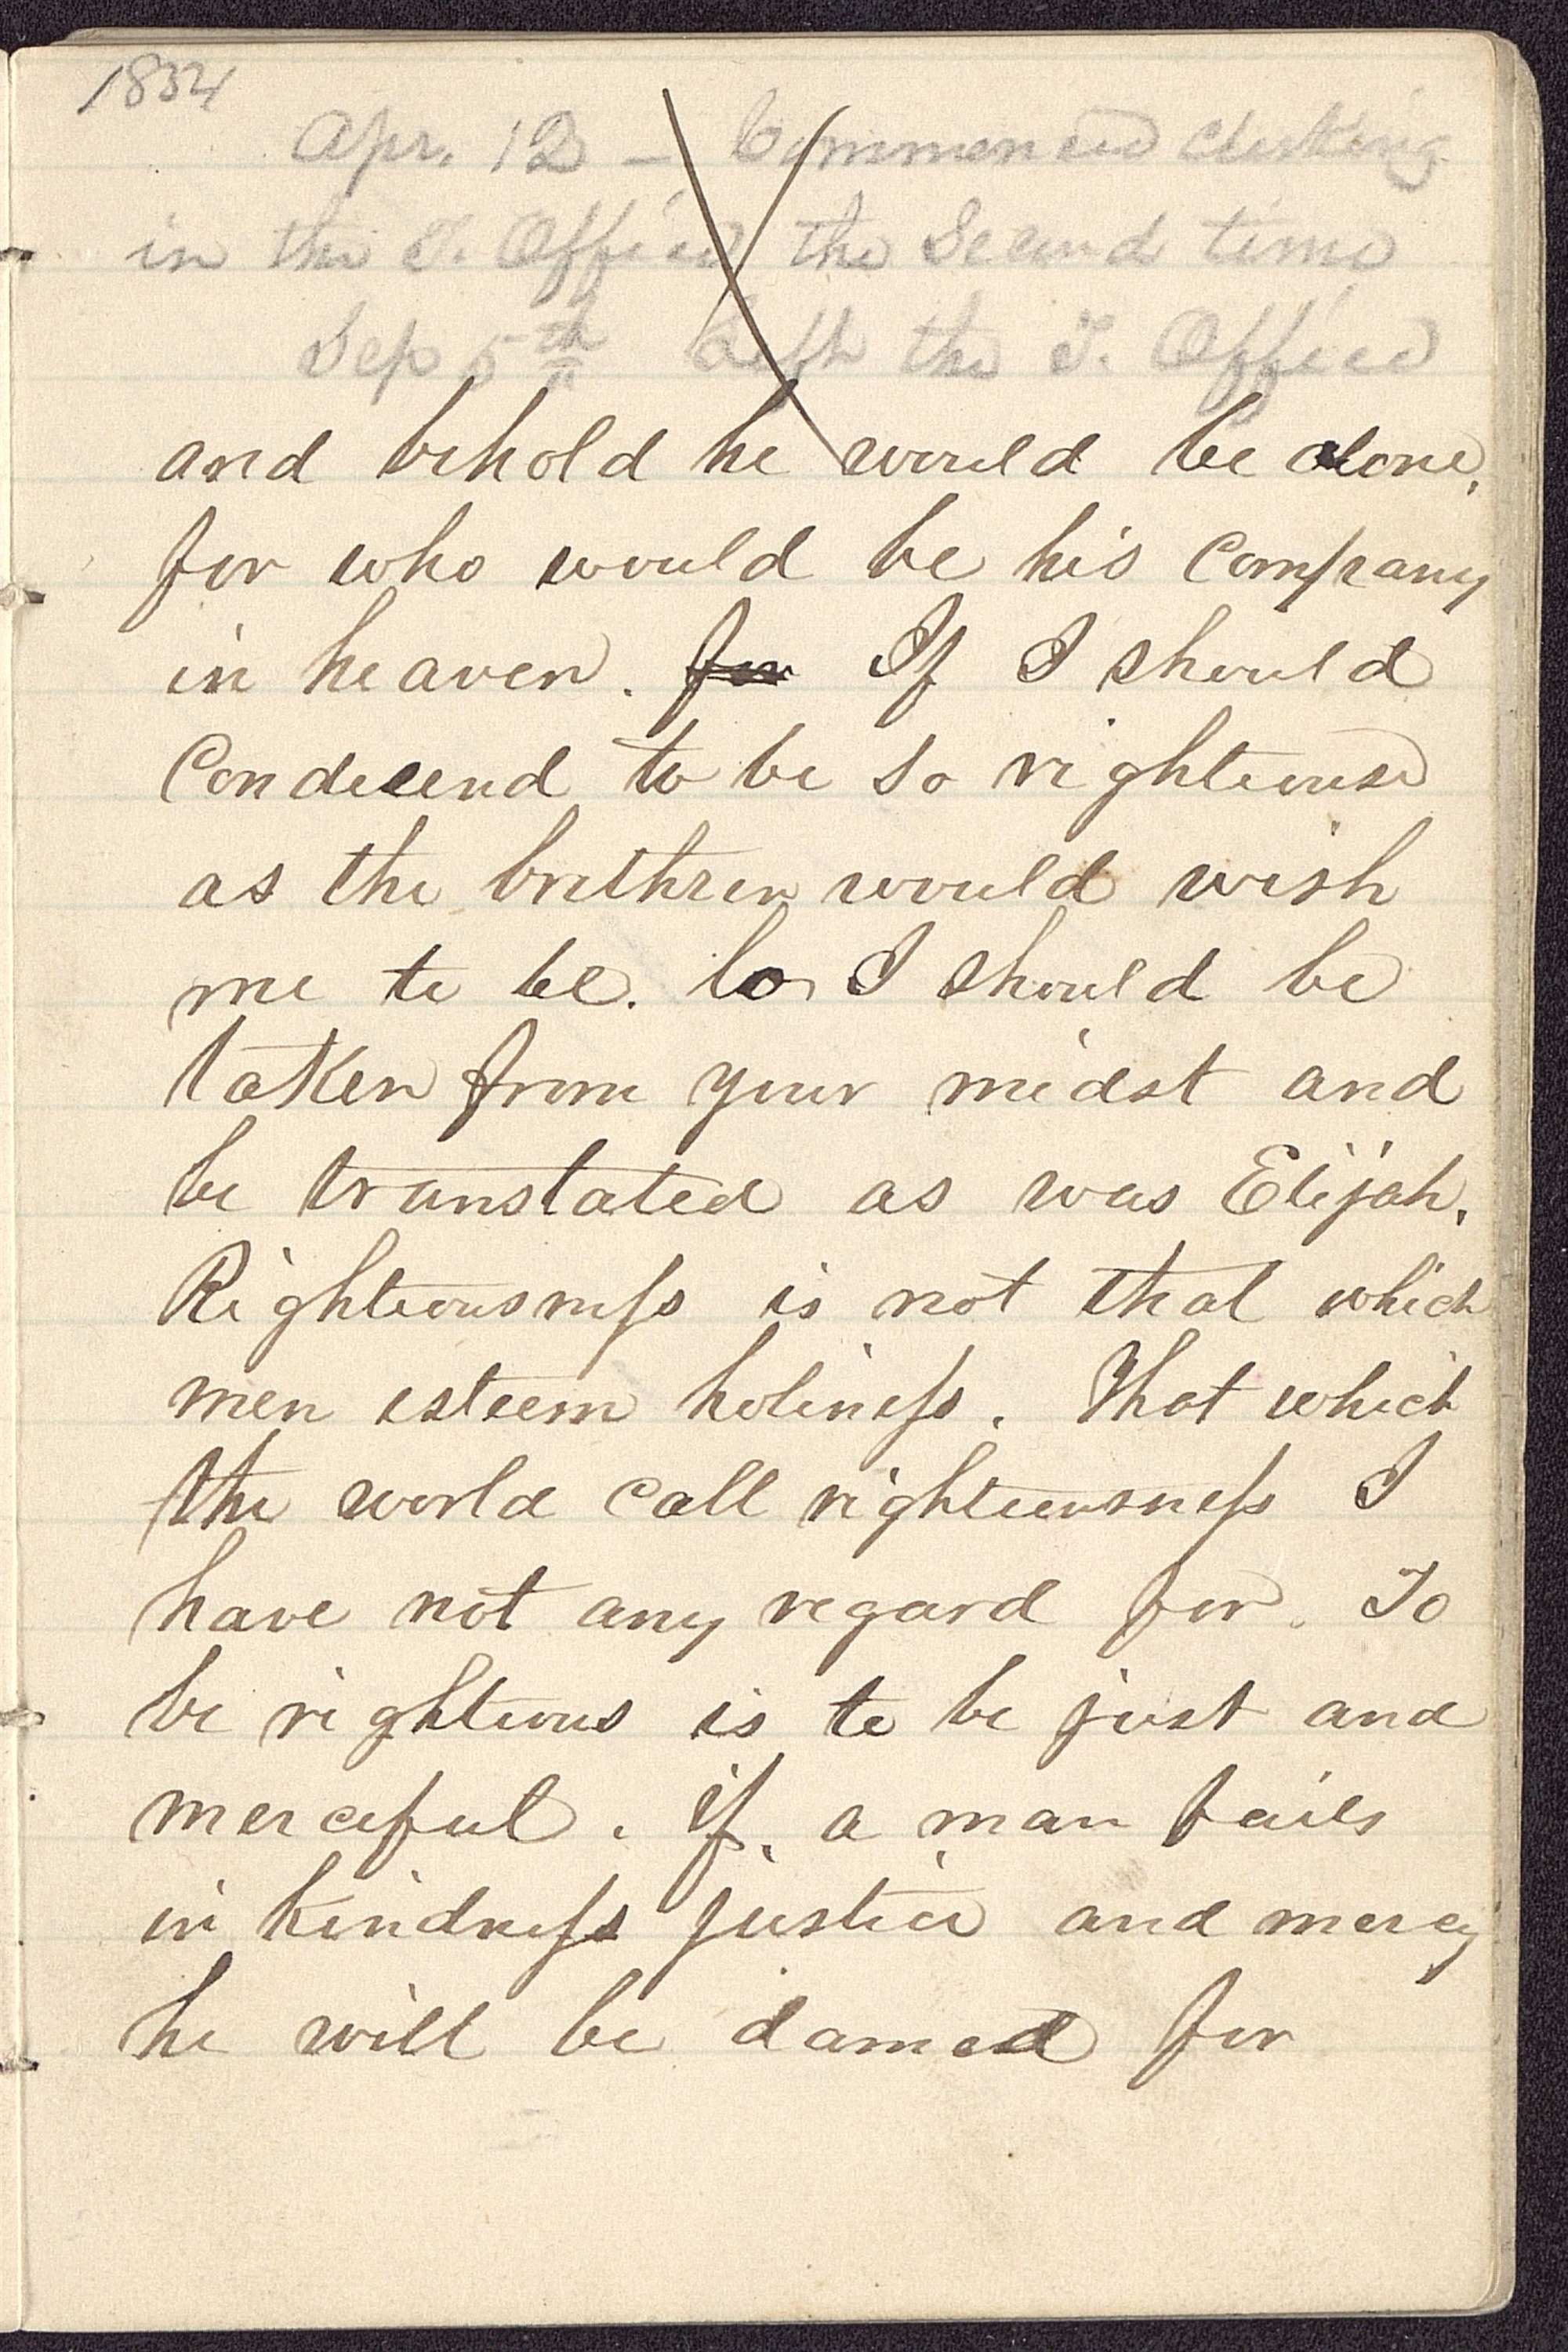 1834
Apr. 12 — Commenced clerking
in the T. Office the Second time
Sep 5th Left the T. Office
and behold he would be alone,
for who would be his Company
in heaven. for If I should
Condecend to be so righteouse
as the brethren would wish
me to be. lo I should be
taken from your midst and
be translated as was Elijah.
Righteousness is not that which
men esteem holiness. That which
the world call righteousness I
have not any regard for. To
be righteous is to be just and
merciful. if a man fails
in kindness justice and mercy
he will be damed for